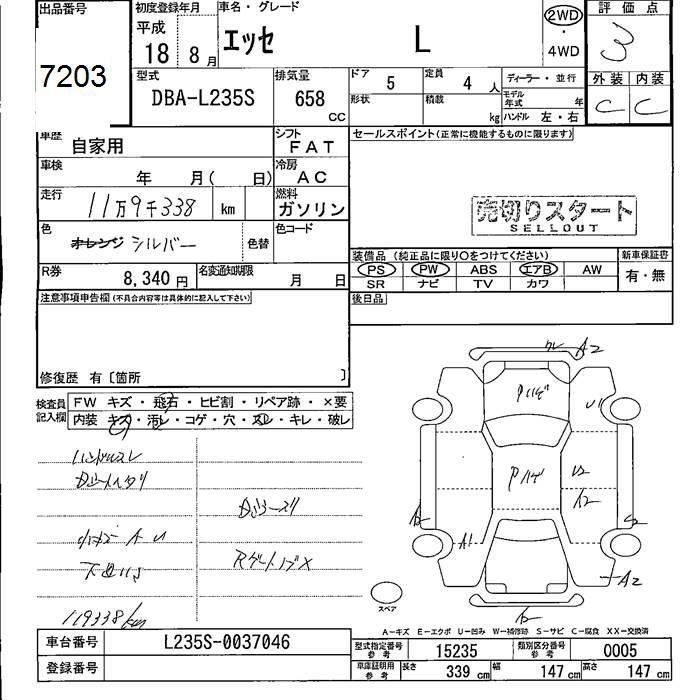 出品番号
7203
初度登録年月
平成
18 8月
車名・グレード
エッセ L
2WD
・
4WD
評価点
3
外装 内装
C C
型式
DBA-L235S
排気量
658
CC
ドア
5
定員
4 人
形状
積載
kg
ディーラー・並行
モデル年式 年
ハンドル 左・右
車歴
自家用
シフト
FAT
車検
年 月( 日)
冷房
AC
走行
11万9千338 km
燃料
ガソリン
色
オレンジ シルバー
色替
色コード
R券
8,340円
名変通知期限
月 日
セールスポイント(正常に機能するものに限ります)
売切りスタート
SELLOUT
装備品 (純正品に限り○をつけてください)
PS PW ABS エアB AW
SR ナビ TV カワ
新車保証書
有・無
後日品
注意事項申告欄(不具合内容等は具体的に記入して下さい)
修復歴 有〔箇所 〕
検査員記入欄
FW キズ・飛石・ヒビ割・リペア跡・×要
内装 キズ・汚レ・コゲ・穴・スレ・キレ・破レ
ハンドルスレ
119338km
A2
Pハゲ
U1
Pハゲ
U2
A2
A1
A2
スペア
A-キズ E-エクボ U-凹み W-補修跡 S-サビ C-腐食 XX-交換済
車台番号 L235S-0037046
登録番号
型式指定番号 参考 15235
類別区分番号 参考 0005
車庫証明用 参考 長さ 339 cm 幅 147 cm 高さ 147 cm